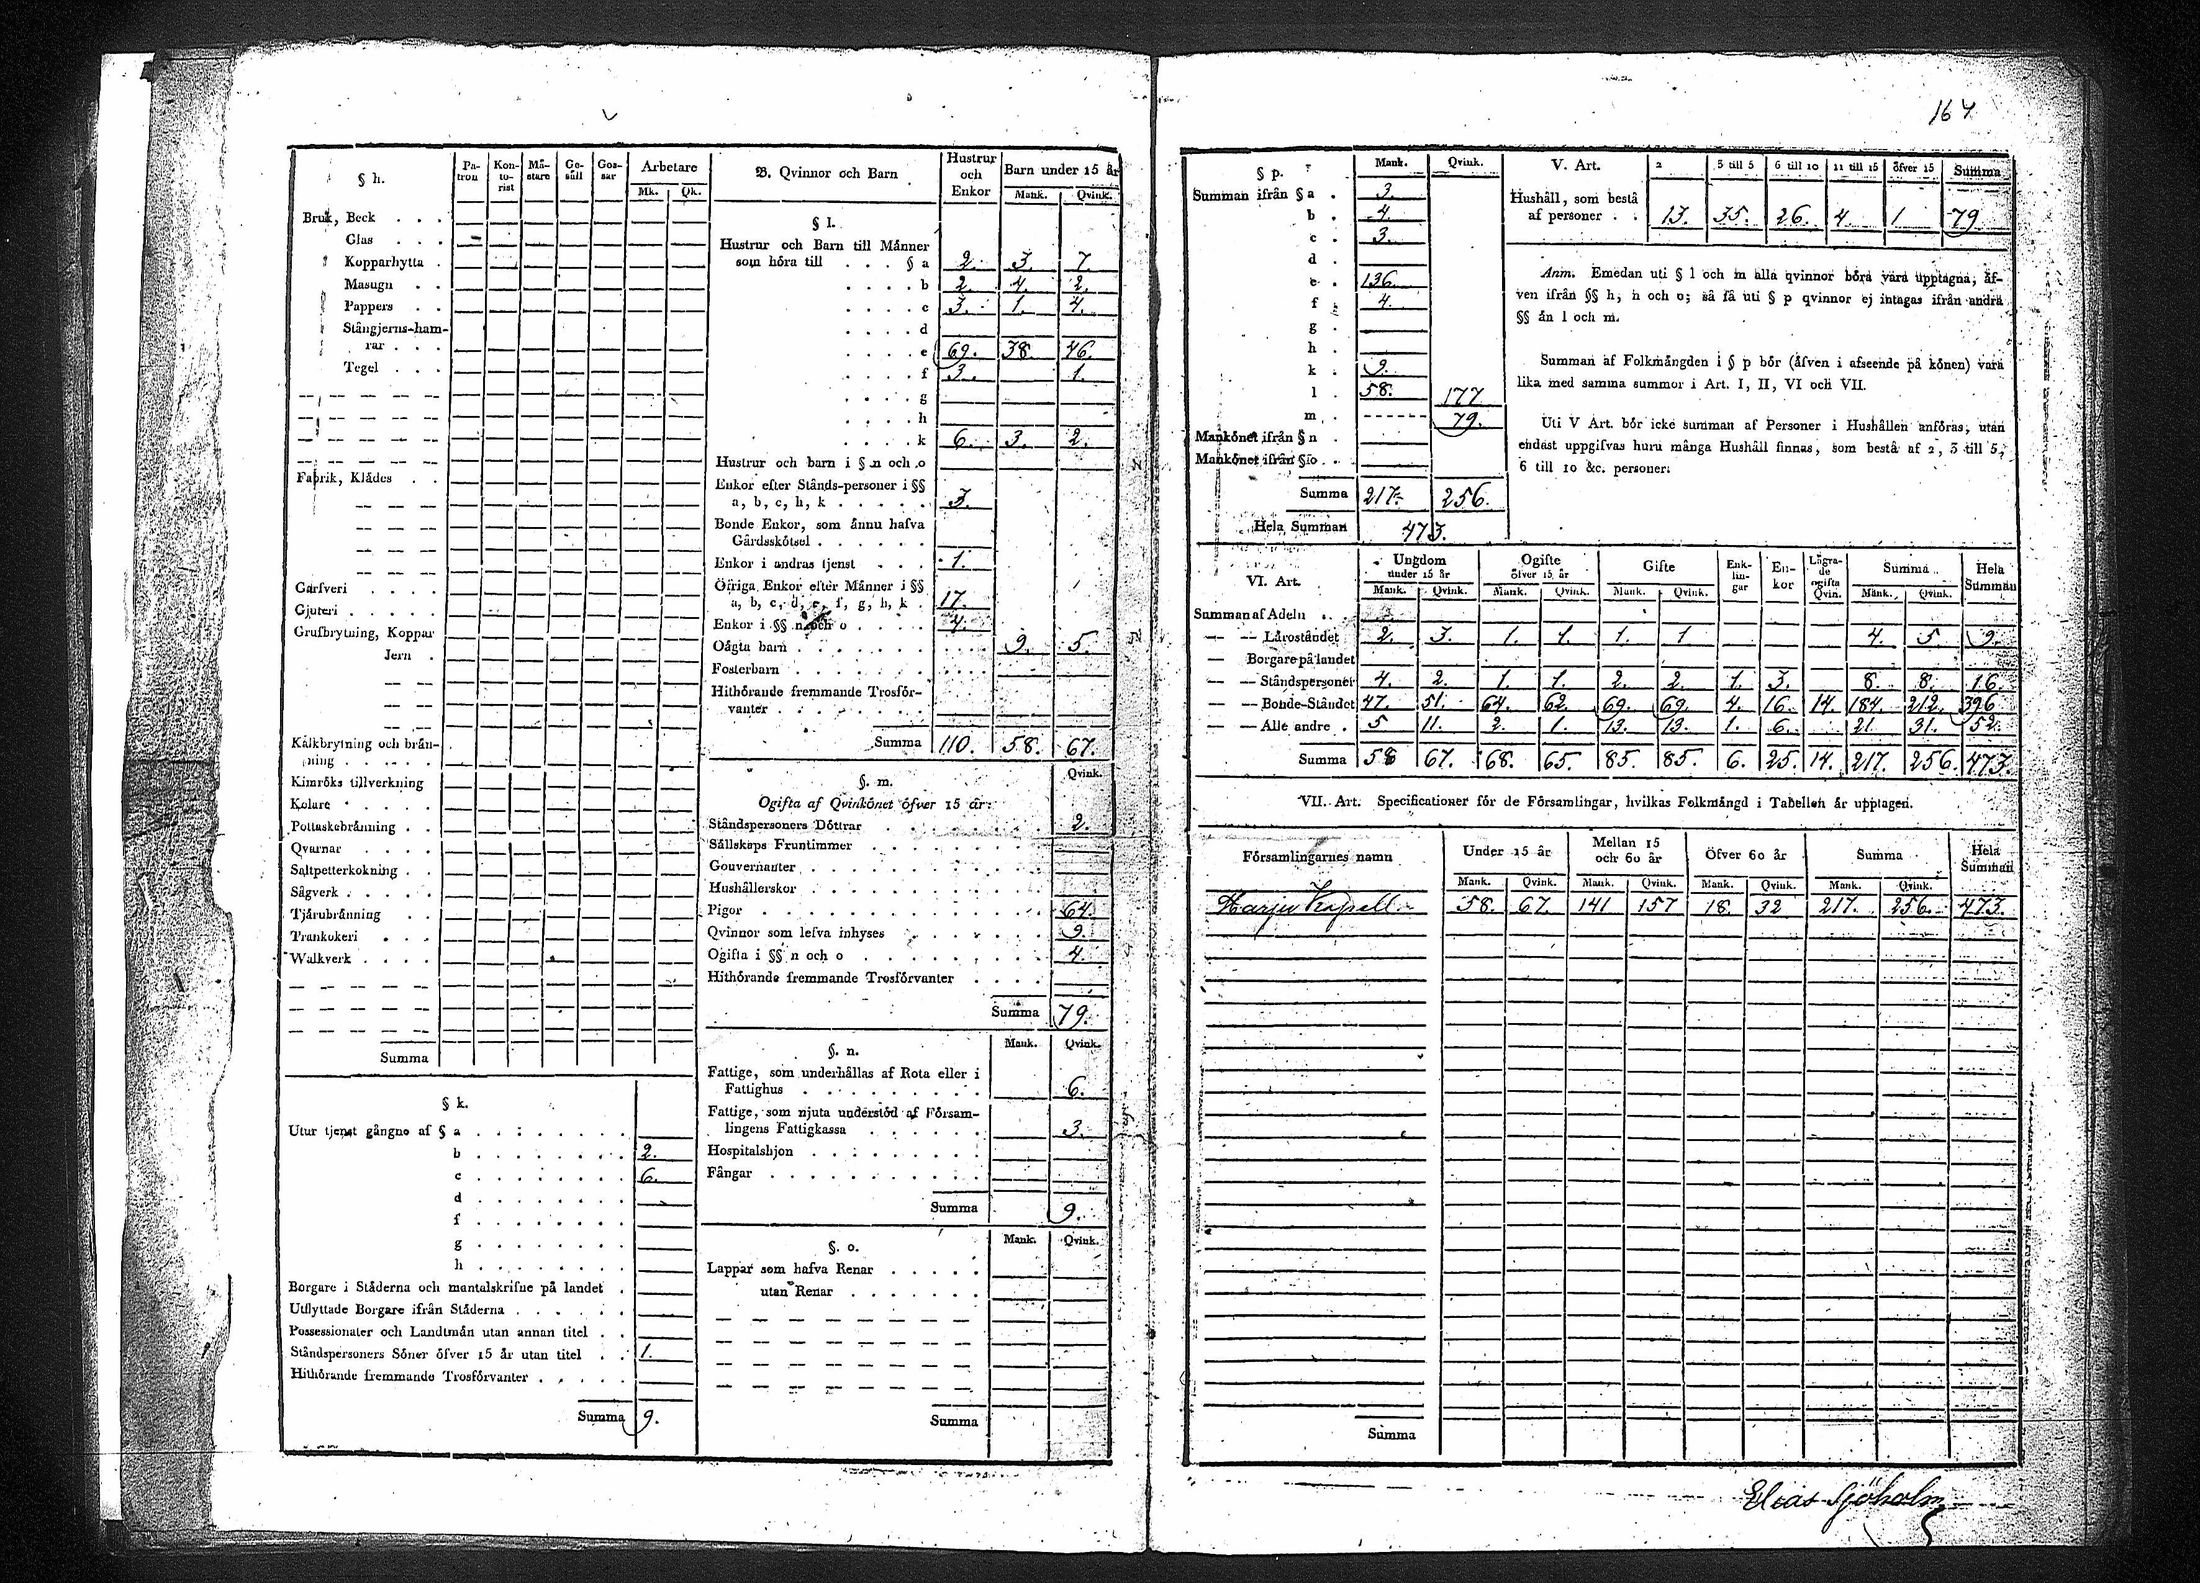 164
§ h.
Pa-
tron
Kon-
to-
rist
Mä-
stare
Ge-
säll
Gos-
sar
Arbetare
Mk. Qk.
Bruk, Beck . . .
Glas . . .
Kopparhytta .
Masugn . .
Pappers . .
Stångjerns-ham-
rar . . .
Tegel . . .
Fabrik, Klädes . .
Garfveri . . . .
Gjuteri . . . . .
Grufbrytning, Koppar
Jern .
Kalkbrytning och brän-
ning . . . . .
Kimröks tillverkning
Kolare . . . . .
Pottaskebränning . .
Qvarnar . . . .
Saltpetterkokning . .
Sågverk . . . . .
Tjärubränning . .
Trankokeri . . .
Walkverk . . . .
Summa
§ k.
Utur tjenst gångne af § a . . . . . . .
b . . . . . . . . 2.
c . . . . . . . . 6.
d . . . . . . . .
f . . . . . . . .
g . . . . . . . .
h . . . . . . . .
Borgare i Städerna och mantalskrifne på landet .
Utflyttade Borgare ifrån Städerna . . . . . .
Possessionater och Landtmän utan annan titel . .
Ståndspersoners Söner öfver 15 år utan titel . . 1.
Hithörande fremmande Trosförvanter . . . . .
Summa 9.
B. Qvinnor och Barn
Hustrur
och
Enkor
Barn under 15 år
Mank. Qvink.
§ l.
Hustrur och Barn till Männer
som höra till . . . § a 2. 3. 7.
. . . . b 2. 4. 2.
. . . . c 3. 1. 4.
. . . . d
. . . . e 69. 38. 46.
. . . . f 3. 1.
. . . . g
. . . . h
. . . . k 6. 3. 2.
Hustrur och barn i § n och o
Enkor efter Stånds-personer i §§
a, b, c, h, k . . . . . 3.
Bonde Enkor, som ännu hafva
Gårdsskötsel . . . . . .
Enkor i andras tjenst . . . 1.
Öfriga Enkor efter Männer i §§
a, b, c, d, e, f, g, h, k . 17.
Enkor i §§ n och o . . . . 4.
Oägta barn . . . . . . . 9. 5.
Fosterbarn . . . . . . .
Hithörande fremmande Trosför-
vanter . . . . . . . .
Summa 110. 58. 67.
§. m.
Qvink.
Ogifta af Qvinkönet öfver 15 år:
Ståndspersoners Döttrar . . . . . . . . 2.
Sällskaps Fruntimmer . . . . . . . .
Gouvernanter . . . . . . . . . . .
Hushållerskor . . . . . . . . . . .
Pigor . . . . . . . . . . . . . 64.
Qvinnor som lefva inhyses . . . . . . . 9.
Ogifta i §§ n och o . . . . . . . . . 4.
Hithörande fremmande Trosförvanter . . . .
Summa 79.
§. n.
Mank. Qvink.
Fattige, som underhållas af Rota eller i
Fattighus . . . . . . . . . 6.
Fattige, som njuta understöd af Försam-
lingens Fattigkassa . . . . . . 3.
Hospitalshjon . . . . . . . . .
Fångar . . . . . . . . . . .
Summa 9.
§. o.
Mank. Qvink.
Lappar som hafva Renar . . . . .
utan Renar . . . . . . .
Summa
§ p.
Mank. Qvink.
Summan ifrån § a . 3.
b . 4.
c . 3.
d .
e . 136.
f . 4.
g .
h .
k . 9.
l . 58. 177
m . 79.
Mankönet ifrån § n .
Mankönet ifrån § o . .
Summa 217. 256.
Hela Summan 473.
V. Art. 2 3 till 5 6 till 10 11 till 15 öfver 15 Summa
Hushåll, som bestå
af personer . . 13. 35. 26. 4. 1. 79
Anm. Emedan uti § l och m alla qvinnor böra vara upptagna, äf-
ven ifrån §§ h, n och o; så få uti § p qvinnor ej intagas ifrån andra
§§ än l och m.
Summan af Folkmängden i § p bör (äfven i afseende på könen) vara
lika med samma summor i Art. I, II, VI och VII.
Uti V Art. bör icke summan af Personer i Hushållen anföras, utan
endast uppgifvas huru många Hushåll finnas, som bestå af 2, 3 till 5,
6 till 10 &c. personer.
VI. Art.
Ungdom
under 15 år
Ogifte
öfver 15 år
Gifte
Enk-
lin-
gar
En-
kor
Lägra-
de
ogifta
Qvin.
Summa
Hela
Summan
Mank. Qvink. Mank. Qvink. Mank. Qvink. Mank. Qvink.
Summan af Adeln . .
— — Läroståndet 2. 3. 1. 1. 1. 1 4. 5 9.
— Borgare på landet
— — Ståndspersoner 4. 2. 1. 1. 2. 2. 1. 3. 8. 8. 16.
— — Bonde-Ståndet 47. 51. 64. 62. 69. 69. 4. 16. 14. 184. 212. 396
— — Alle andre . 5 11. 2. 1. 13. 13. 1. 6. 21. 31. 52.
Summa 58 67. 68. 65. 85. 85. 6. 25. 14. 217. 256. 473.
VII. Art. Specificationer för de Församlingar, hvilkas Folkmängd i Tabellen är upptagen.
Församlingarnes namn
Under 15 år
Mellan 15
och 60 år
Öfver 60 år
Summa
Hela
Summan
Mank. Qvink. Mank. Qvink. Mank. Qvink. Mank. Qvink.
Harju Kapell 58. 67. 141 157 18. 32 217. 256. 473.
Summa
Elias Sjöholm